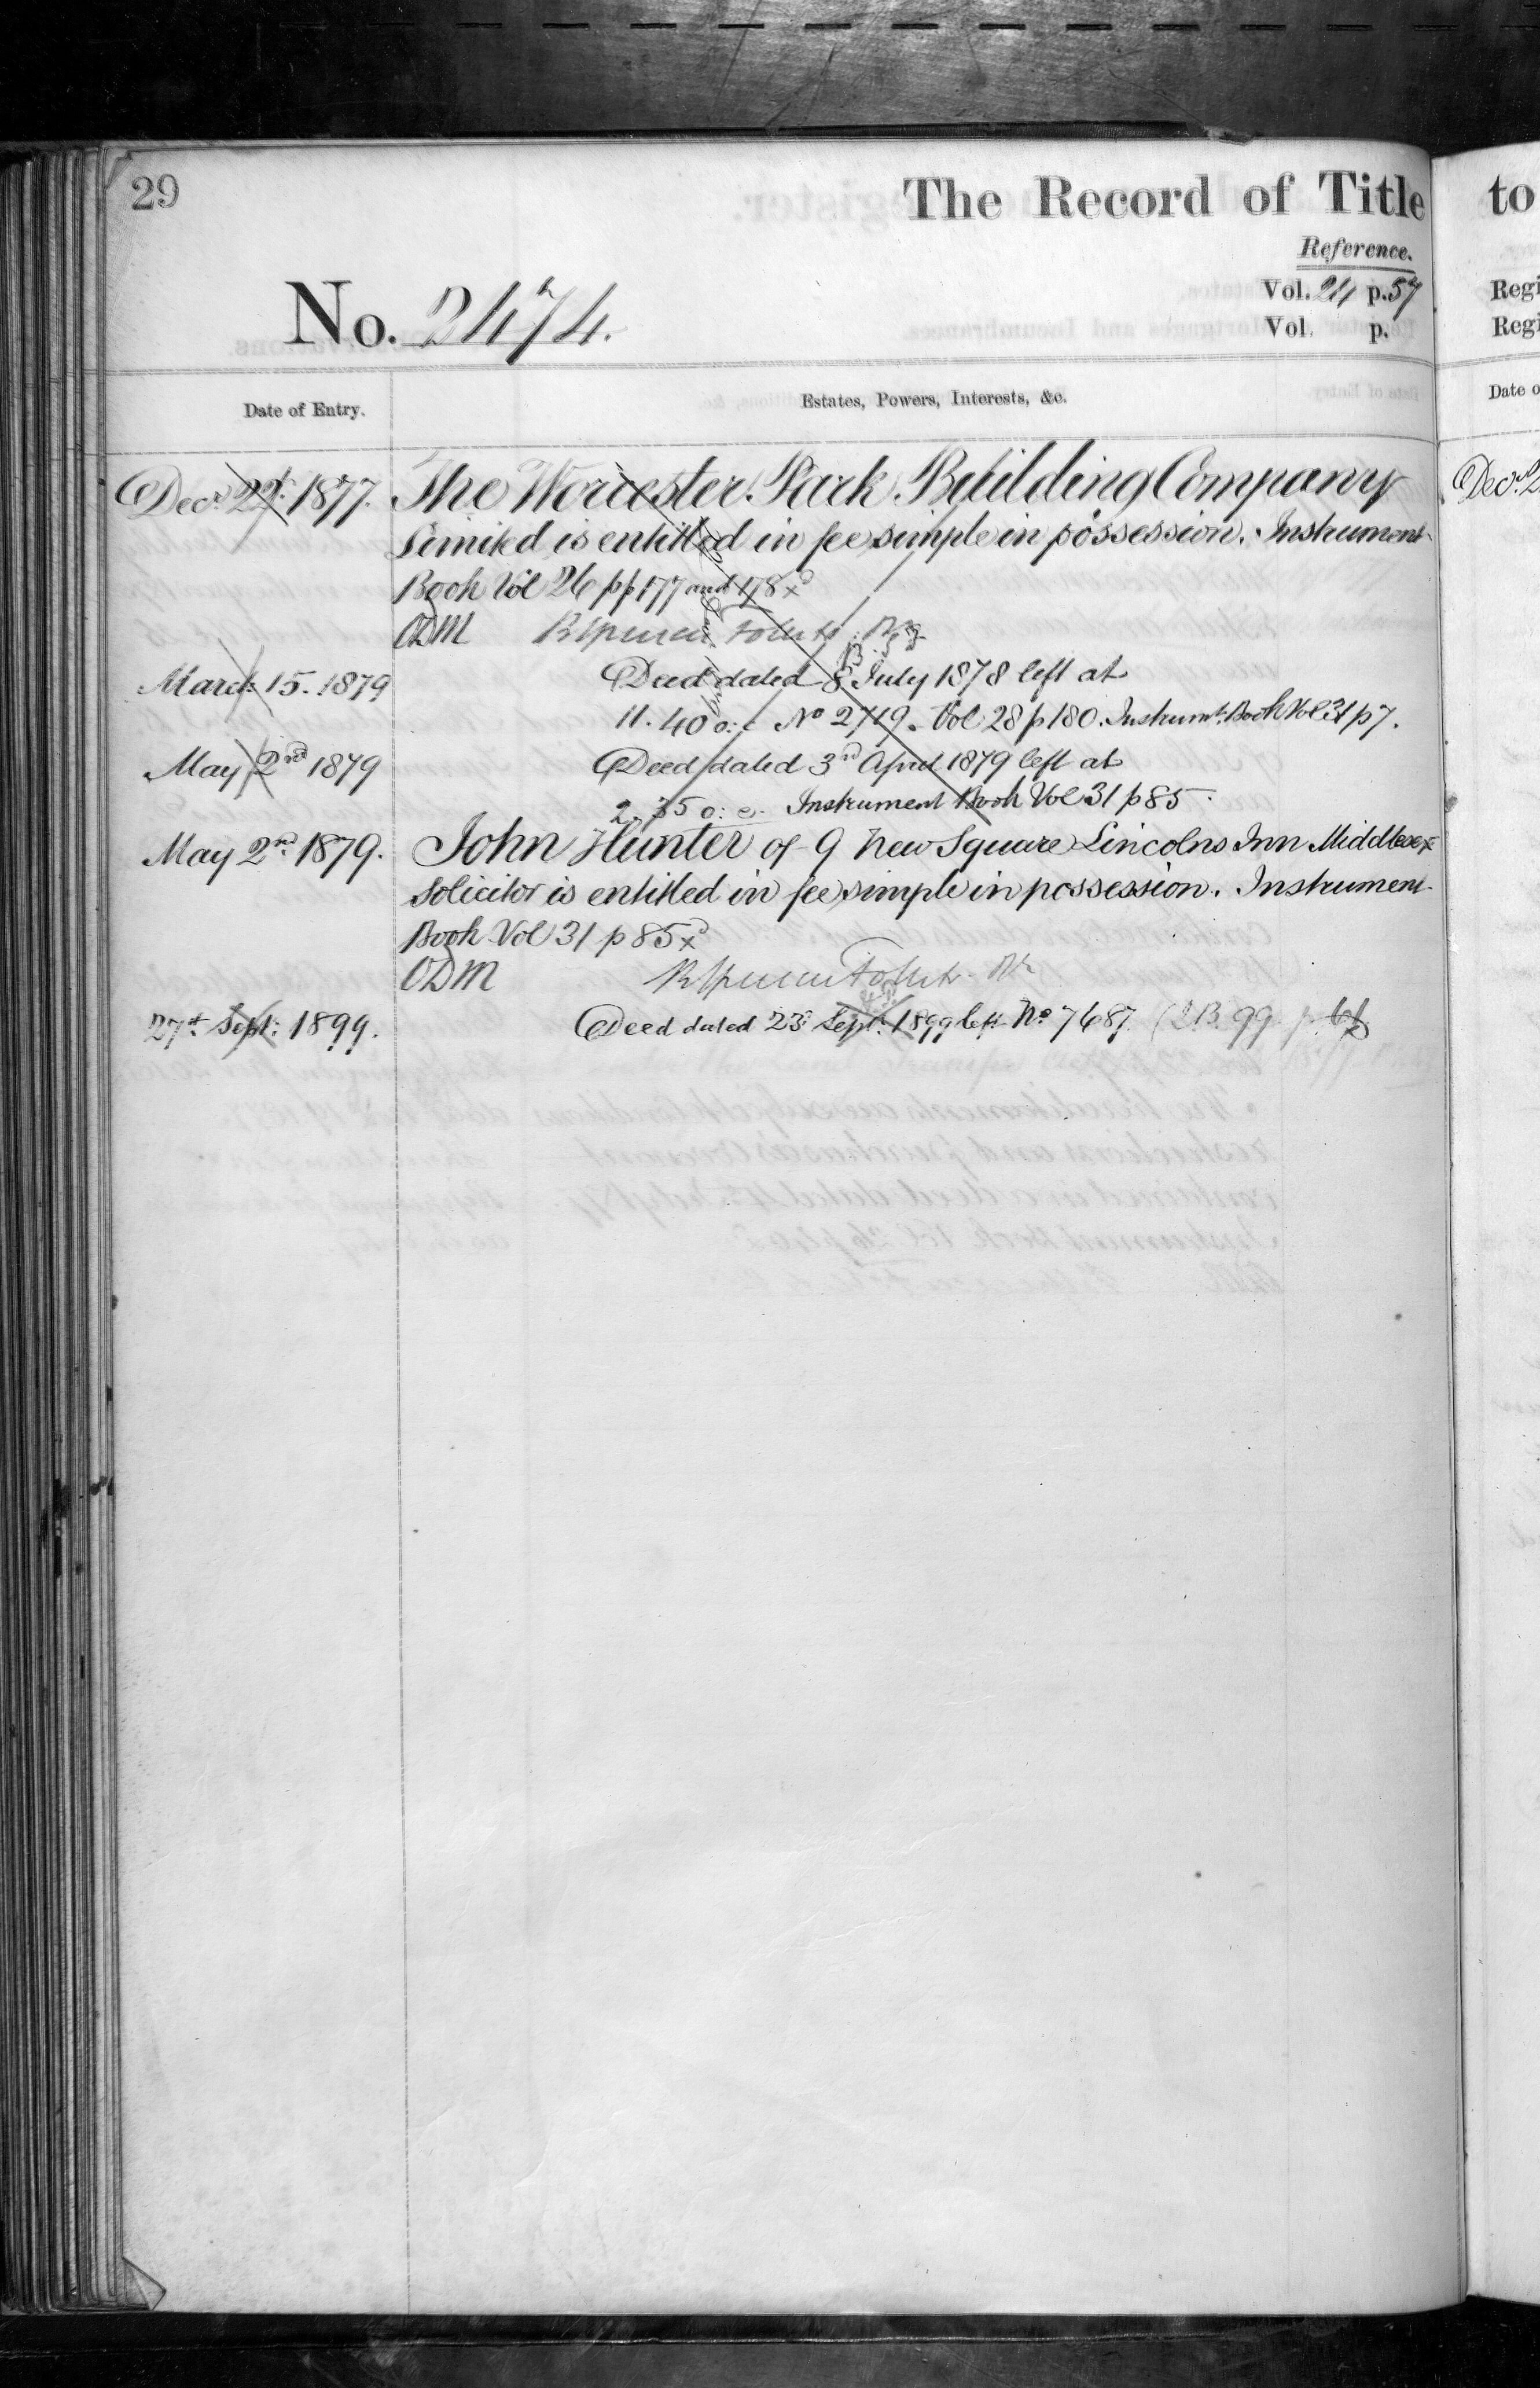 29
The Record of Title
Reference.
Vol. 24 p. 57
Vol. p.
No. 2474.
Date of Entry.
Estates, Powers, Interests, &c.
Decr 22d 1877. The Worcester Park Building Company
Limited is entitled in fee simple in possession. Instrument
Book Vol 26 pp 177 and 178 xd
ODM
March 15. 1879 Deed dated 8 July 1878 left at
11. 40 o: c No 2719. Vol 28 p 180. Instrumt. Book Vol 31 p 7.
May 2nd 1879 Deed dated 3rd April 1879 left at
2. 35 o: c. Instrument Book Vol 31 p 85.
May 2nd 1879. John Hunter of 9 New Square Lincolns Inn Middlesex
Solicitor is entitled in fee simple in possession. Instrument
Book Vol 31 p 85 xd
ODM
27th Sept: 1899. Deed dated 23d Sept. 1899 left No 7687. (2B. 99 p.
to
Regi
Regi
Date o
Decr 2